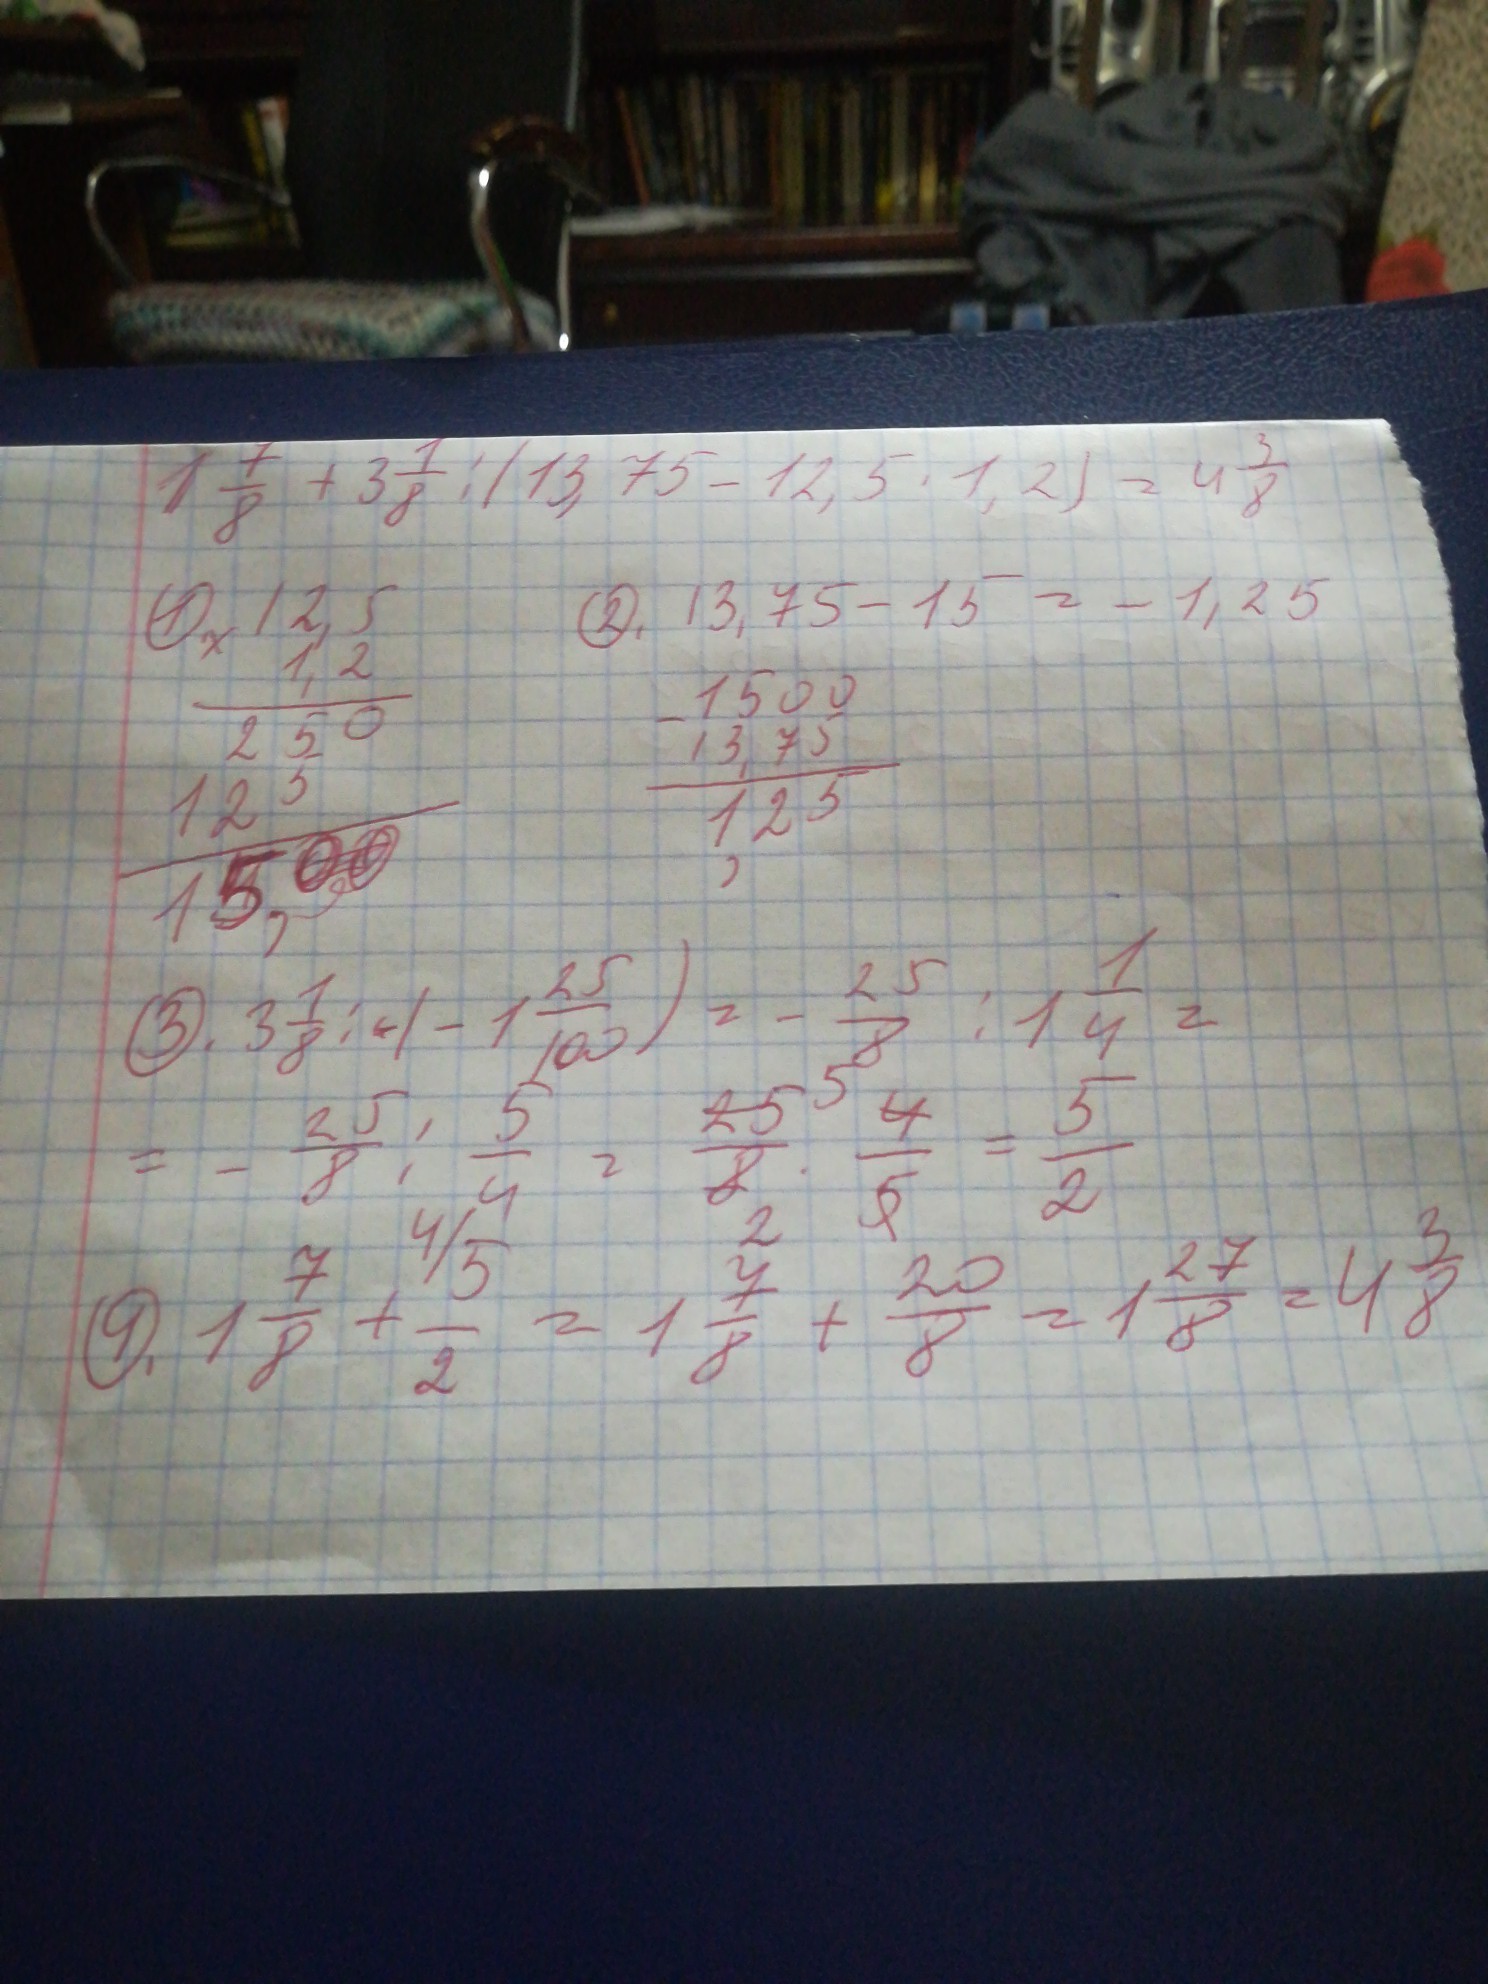 1 7/8 + 3 1/8 : (13,75 - 12,5 · 1,2) = 4 3/8
①. × 12,5
1,2
250
125
15,00
②. 13,75 - 15 = - 1,25
- 1500
13,75
125
,
③. 3 1/8 : (- 1 25/100) = - 25/8 : 1 1/4 =
= - 25/8 : 5/4 = 25/8 5 2 · 4/5 = 5/2
④. 1 7/8 + 4/ 5/2 = 1 7/8 + 20/8 = 1 27/8 = 4 3/8